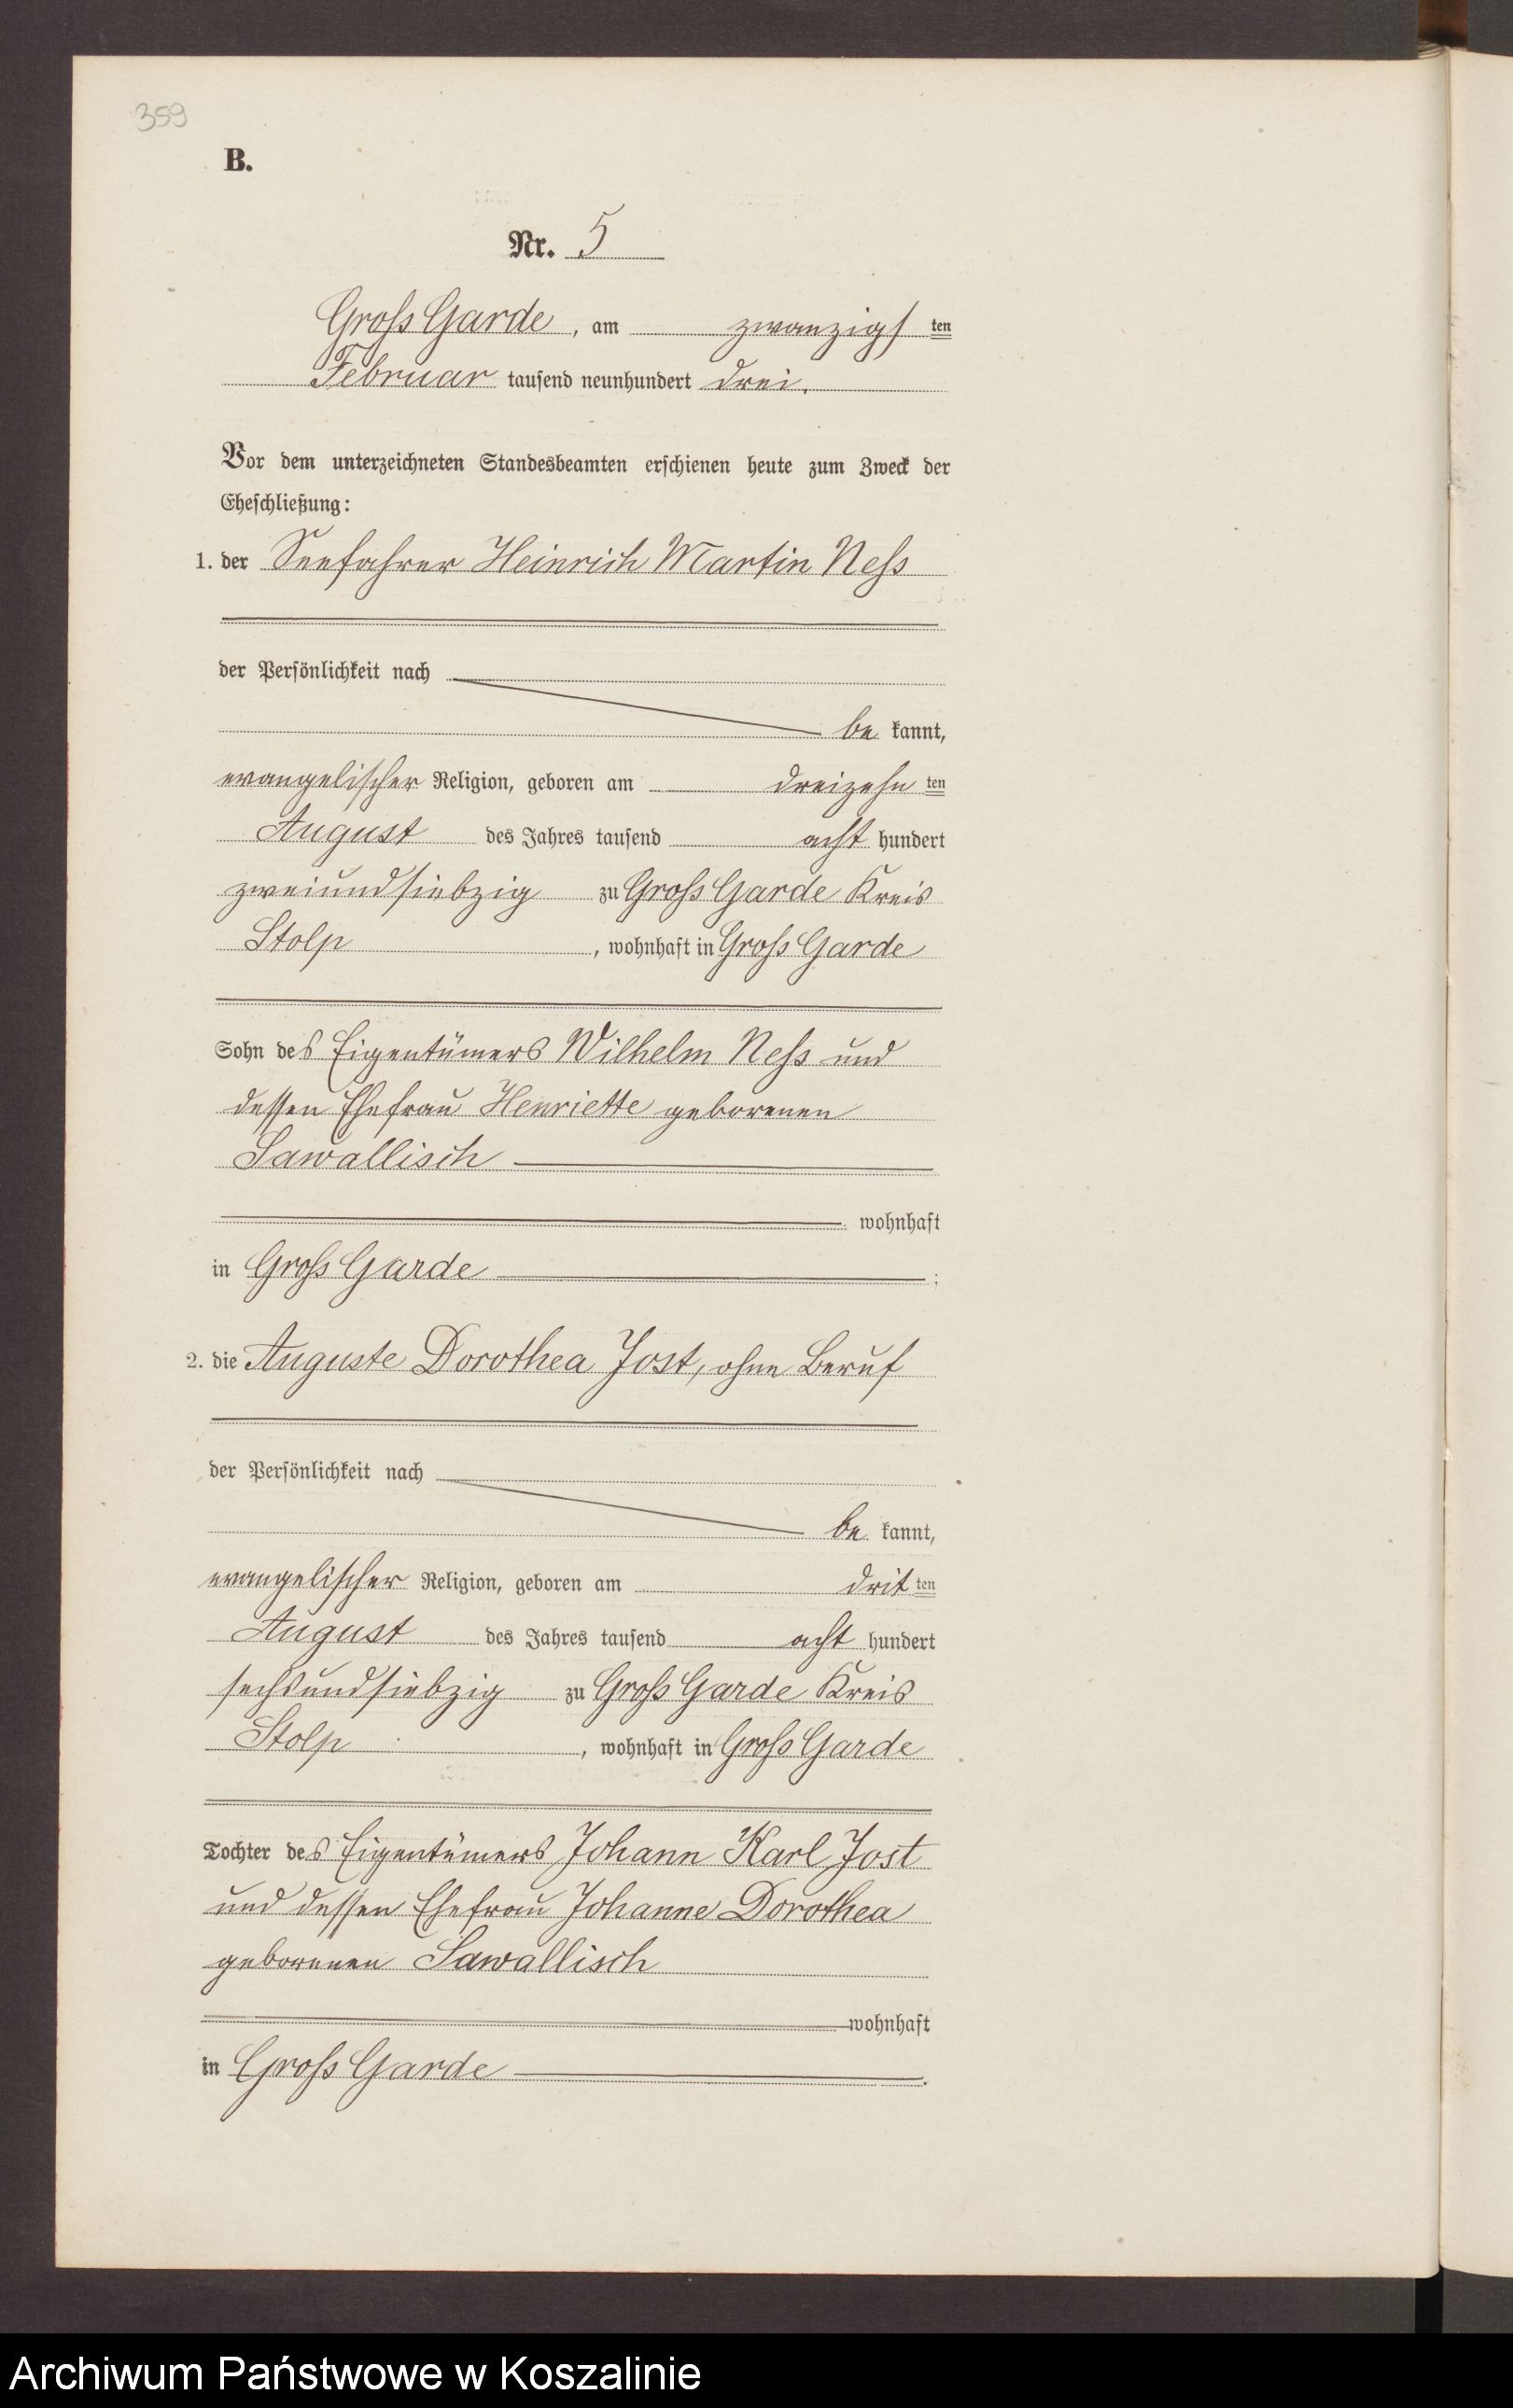 359
B.
Nr. 5
Gross Garde, am zwanzigsten
Februar tausend neunhundert drei.
Vor dem unterzeichneten Standesbeamten erschienen heute zum Zweck der
Eheschließung:
1. der Seefahrer Heinrich Martin Ness
der Persönlichkeit nach
be kannt,
evangelischer Religion, geboren am dreizehn ten
August des Jahres tausend acht hundert
zweiundsiebzig zu Gross Garde Kreis
Stolp, wohnhaft in Gross Garde
Sohn des Eigentümers Wilhelm Ness und
dessen Ehefrau Henriette geborenen
Sawallisch
wohnhaft
in Gross Garde ;
2. die Auguste Dorothea Jost, ohne Beruf
der Persönlichkeit nach
be kannt,
evangelischer Religion, geboren am drit ten
August des Jahres tausend acht hundert
sechsundsiebzig zu Gross Garde Kreis
Stolp, wohnhaft in Gross Garde
Tochter des Eigentümers Johann Karl Jost
und dessen Ehefrau Johanne Dorothea
geborenen Sawallisch
wohnhaft
in Gross Garde .
Archiwum Państwowe w Koszalinie